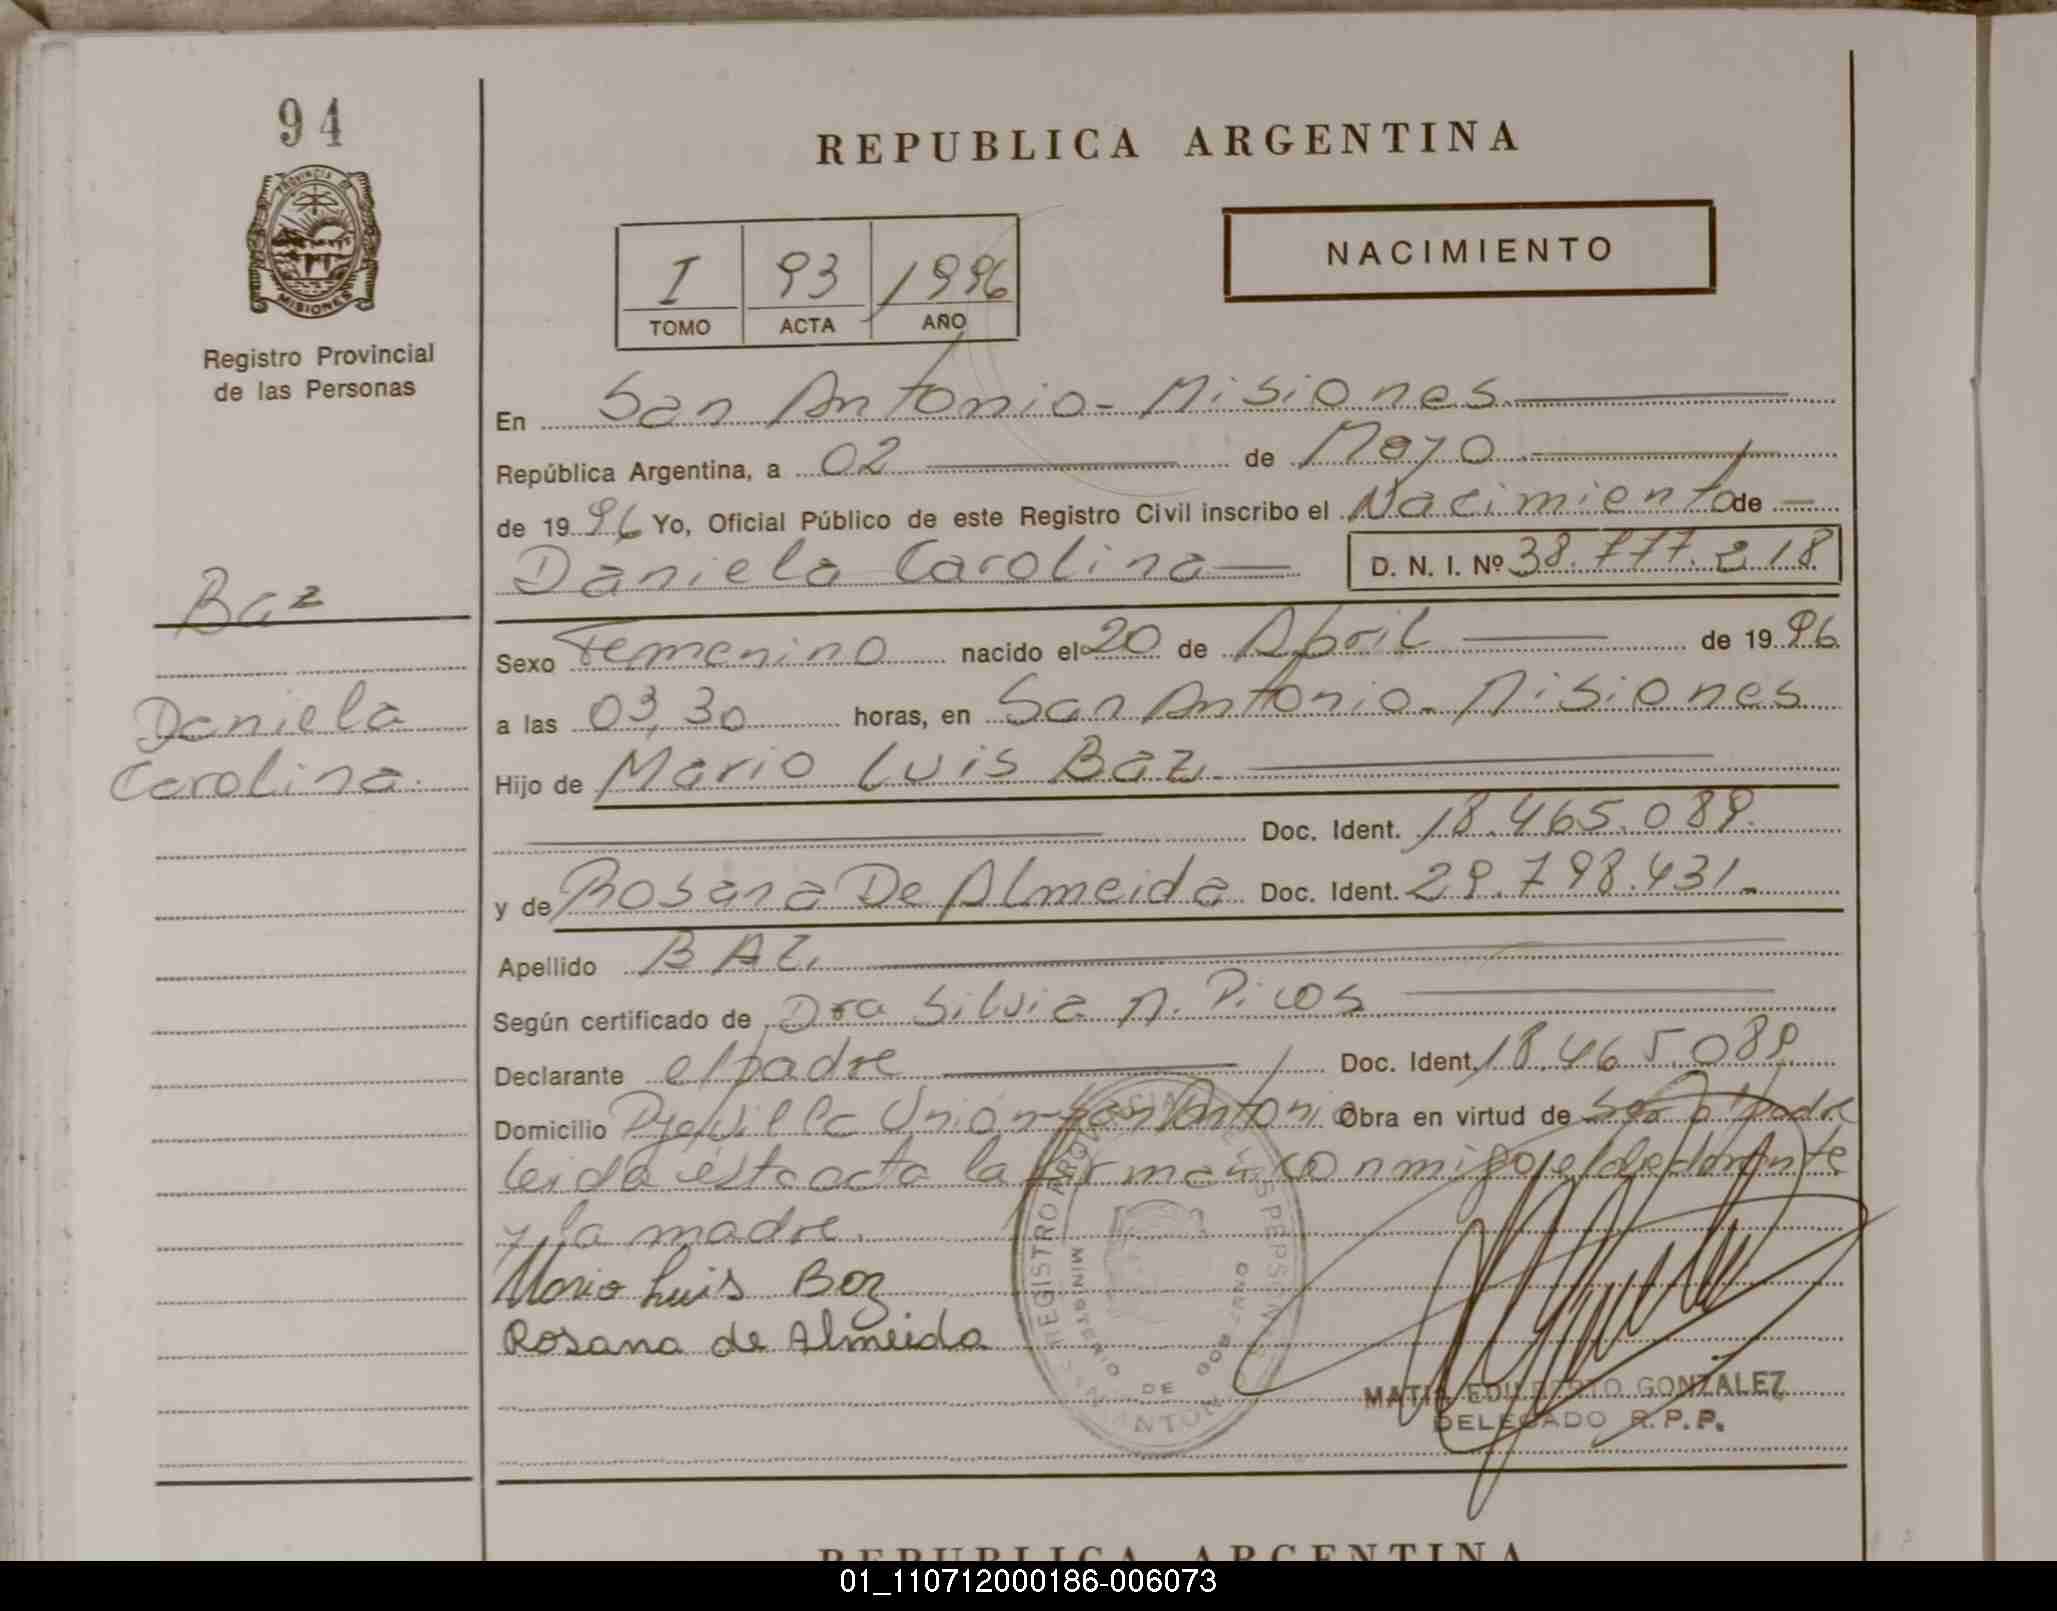 94
REPUBLICA ARGENTINA
PROVINCIA DE
MISIONES
NACIMIENTO
I 93 1996
TOMO ACTA AÑO
Registro Provincial
de las Personas
En San Antonio - Misiones
República Argentina, a 02 de Mayo
de 1996 Yo, Oficial Público de este Registro Civil inscribo el Nacimiento de
Daniela Carolina D. N. I. Nº 38.777.218
Baz
Daniela
Carolina
Sexo Femenino nacido el 20 de Abril de 1996
a las 03,30 horas, en San Antonio - Misiones
Hijo de Mario Luis Baz.
Doc. Ident. 18.465.089.
y de Rosana De Almeida Doc. Ident. 29.798.431.-
Apellido BAZ.
Según certificado de Dra Silvia M. Picos
Declarante el padre Doc. Ident. 18.465.089
Domicilio Villa Unión - San Antonio Obra en virtud de ser el padre
leida ésta acta la firman conmigo el declarante
y la madre.
Mario Luis Baz
Rosana de Almeida
REGISTRO PROVINCIAL DE LAS PERSONAS
MINISTERIO DE GOBIERNO
SAN ANTONIO
EDILBERTO GONZALEZ
DELEGADO R.P.P.
REPUBLICA ARGENTINA
01_110712000186-006073